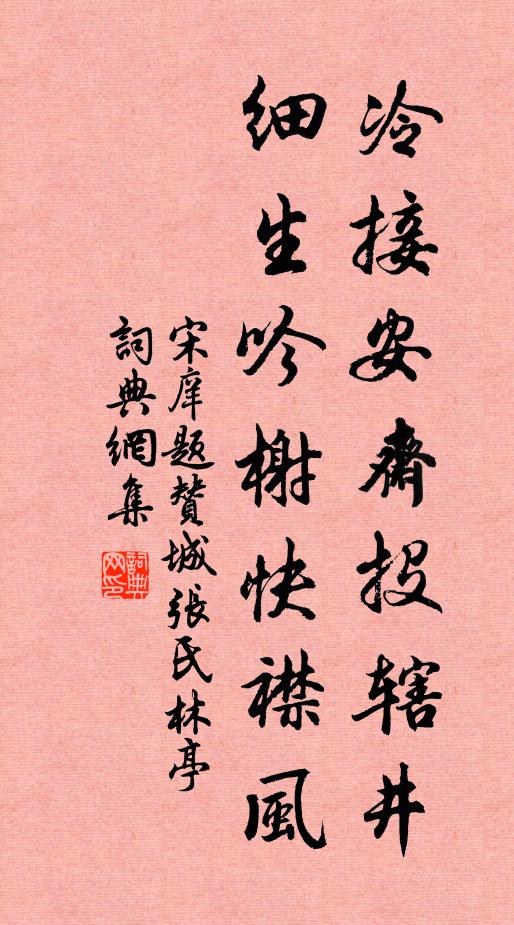 冷接安齋投辖井
細生吟榭快襟風
宋庠題贊城張氏林亭
詞典網集
詞典網印